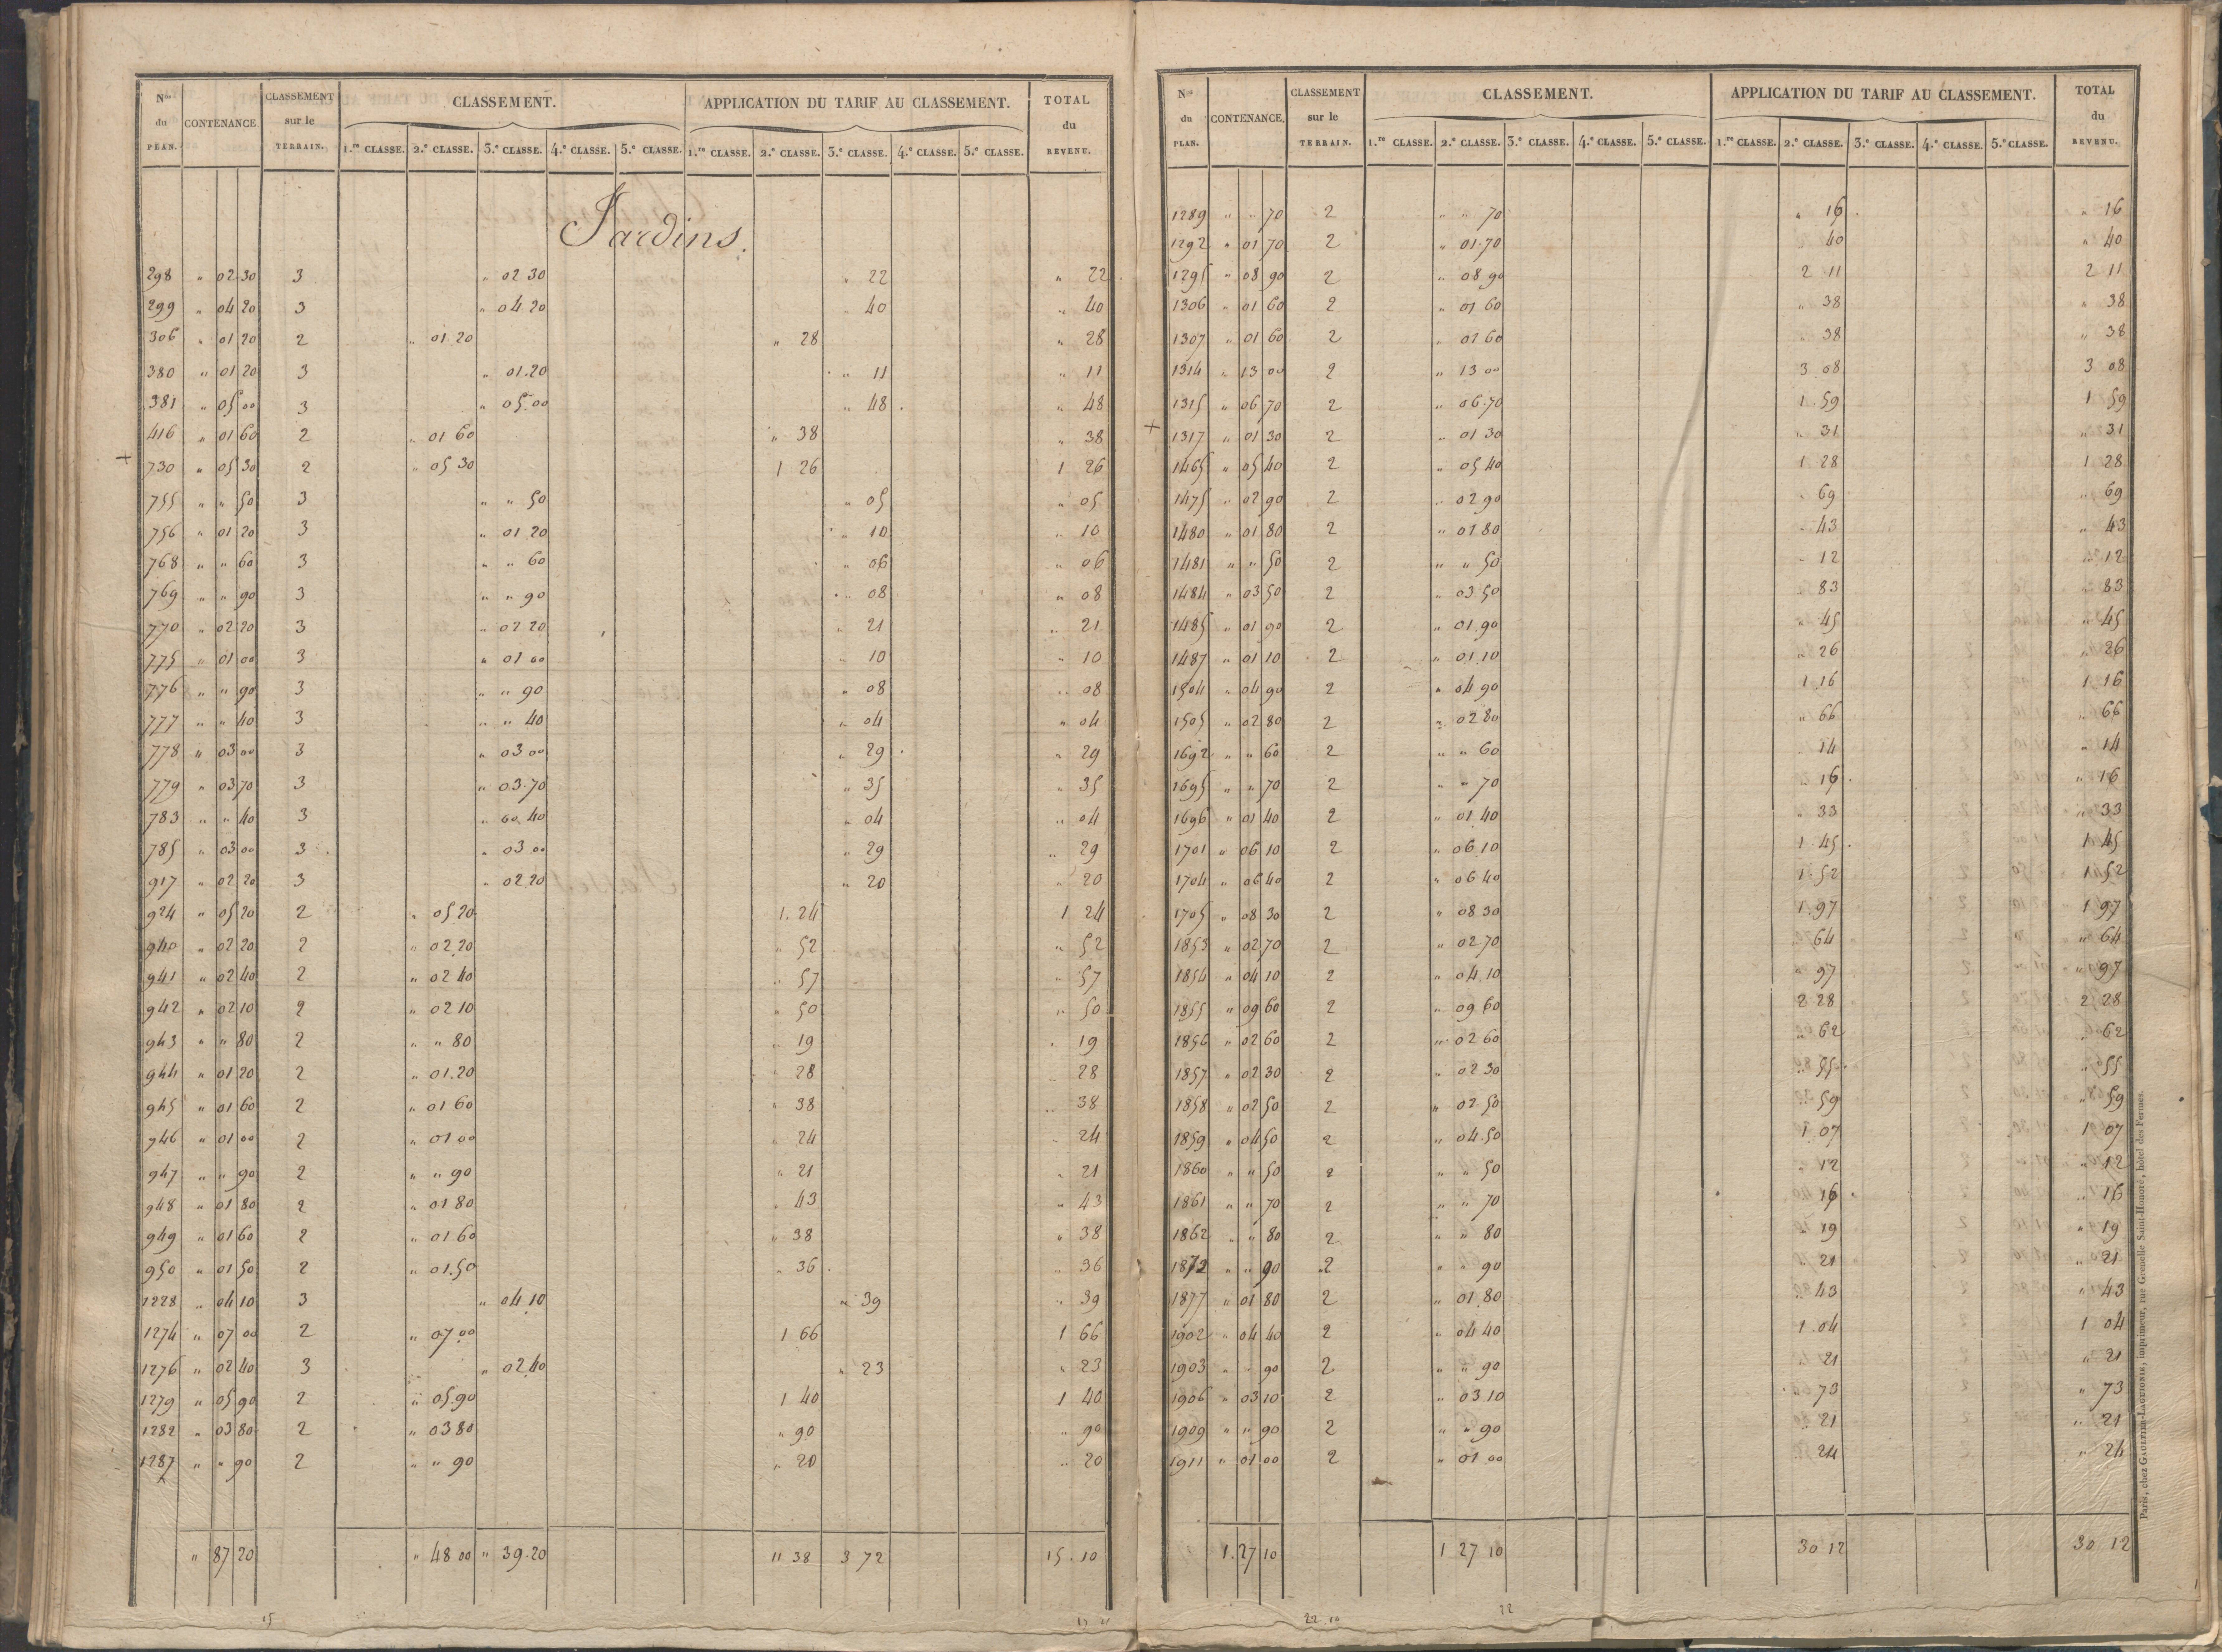 Nos du PLAN. CONTENANCE CLASSEMENT sur le TERRAIN. CLASSEMENT. APPLICATION DU TARIF AU CLASSEMENT. TOTAL du REVENU.
1.re CLASSE. 2.e CLASSE. 3.e CLASSE. 4.e CLASSE. 5.e CLASSE. 1.re CLASSE. 2.e CLASSE. 3.e CLASSE. 4.e CLASSE. 5.e CLASSE.
Jardins.
298 " 02 30 3 " 02 30 " 22 " 22
299 " 04 20 3 " 04.20 40 " 40
306 " 01 20 2 " 01.20 " 28 " 28
380 " 01 20 3 " 01.20 " 11 " 11
381 " 05 00 3 " 05.00 " 48 " 48
416 " 01 60 2 " 01 60 " 38 " 38
+ 730 " 05 30 2 " 05 30 1 26 1 26
755 " " 50 3 " " 50 " 05 " 05
756 " 01 20 3 " 01.20 " 10 " 10
768 " " 60 3 " " 60 " 06 " 06
769 " " 90 3 " " 90 " 08 " 08
770 " 02 20 3 " 02 20 " 21 " 21
775 " 01 00 3 " 01 00 " 10 " 10
776 " " 90 3 " " 90 " 08 " 08
777 " " 40 3 " " 40 " 04 " 04
778 " 03 00 3 " 03 00 " 29 " 29
779 " 03 70 3 " 03.70 " 35 " 35
783 " " 40 3 " 00.40 " 04 " 04
785 " 03 00 3 " 03 00 " 29 " 29
917 " 02 20 3 " 02 20 " 20 " 20
924 " 05 20 2 " 05 20 1.24 1 24
940 " 02 20 2 " 02.20 " 52 " 52
941 " 02 40 2 " 02 40 " 57 " 57
942 " 02 10 2 " 02 10 " 50 " 50
943 " " 80 2 " " 80 " 19 " 19
944 " 01 20 2 " 01.20 " 28 " 28
945 " 01 60 2 " 01 60 " 38 " 38
946 " 01 00 2 " 01 00 " 24 " 24
947 " " 90 2 " " 90 " 21 " 21
948 " 01 80 2 " 01 80 " 43 " 43
949 " 01 60 2 " 01 60 " 38 " 38
950 " 01 50 2 " 01.50 " 36 " 36
1228 " 04 10 3 " 04.10 " 39 " 39
1274 " 07 00 2 " 07.00 1 66 1 66
1276 " 02 40 3 " 02.40 " 23 " 23
1279 " 05 90 2 " 05.90 1 40 1 40
1282 " 03 80 2 " 03 80 " 90 " 90
1287 " " 90 2 " " 90 " 20 " 20
" 87 20 " 48 00 " 39.20 11 38 3 72 15.10
15
Nos du PLAN. CONTENANCE. CLASSEMENT sur le TERRAIN. CLASSEMENT. APPLICATION DU TARIF AU CLASSEMENT. TOTAL du REVENU.
1.re CLASSE. 2.e CLASSE. 3.e CLASSE. 4.e CLASSE. 5.e CLASSE. 1.re CLASSE. 2.e CLASSE. 3.e CLASSE. 4.e CLASSE. 5.e CLASSE.
1289 " " 70 2 " " 70 " 16 " 16
1292 " 01 70 2 " 01.70 " 40 " 40
1295 " 08 90 2 " 08.90 2 11 2 11
1306 " 01 60 2 " 01 60 " 38 " 38
1307 " 01 60 2 " 01 60 " 38 " 38
1314 " 13 00 2 " 13 00 3 08 3 08
1315 " 06 70 2 " 06.70 1.59 1 59
+ 1317 " 01 30 2 " 01 30 " 31 " 31
1465 " 05 40 2 " 05 40 1 28 1 28
1475 " 02 90 2 " 02 90 " 69 " 69
1480 " 01 80 2 " 01 80 " 43 " 43
1481 " " 50 2 " " 50 " 12 " 12
1484 " 03 50 2 " 03 50 " 83 " 83
1485 " 01 90 2 " 01.90 " 45 " 45
1487 " 01 10 2 " 01.10 " 26 " 26
1504 " 04 90 2 " 04 90 1.16 1.16
1505 " 02 80 2 " 02 80 " 66 " 66
1692 " " 60 2 " " 60 " 14 " 14
1695 " " 70 2 " " 70 " 16 " 16
1696 " 01 40 2 " 01.40 " 33 " 33
1701 " 06 10 2 " 06.10 1.45 1 45
1704 " 06 40 2 " 06 40 1.52 1 52
1705 " 08 30 2 " 08 30 1.97 1 97
1853 " 02 70 2 " 02 70 " 64 " 64
1854 " 04 10 2 " 04.10 " 97 " 97
1855 " 09 60 2 " 09 60 2 28 2 28
1856 " 02 60 2 " 02 60 " 62 " 62
1857 " 02 30 2 " 02 30 " 55 " 55
1858 " 02 50 2 " 02.50 " 59 " 59
1859 " 04 50 2 " 04.50 1 07 1 07
1860 " " 50 2 " " 50 " 12 " 12
1861 " " 70 2 " " 70 " 16 " 16
1862 " " 80 2 " " 80 " 19 " 19
1872 " " 90 2 " " 90 " 21 " 21
1877 " 01 80 2 " 01.80 " 43 " 43
1902 " 04 40 2 " 04 40 1.04 1 04
1903 " " 90 2 " " 90 " 21 " 21
1906 " 03 10 2 " 03 10 " 73 " 73
1909 " " 90 2 " " 90 " 21 " 21
1911 " 01 00 2 " 01 00 " 24 " 24
1.27 10 1 27 10 30 12 30 12
22.10
Paris, chez GAULTIER-LAGUIONIE, imprimeur, rue Grenelle Saint-Honoré, hôtel des Fermes.